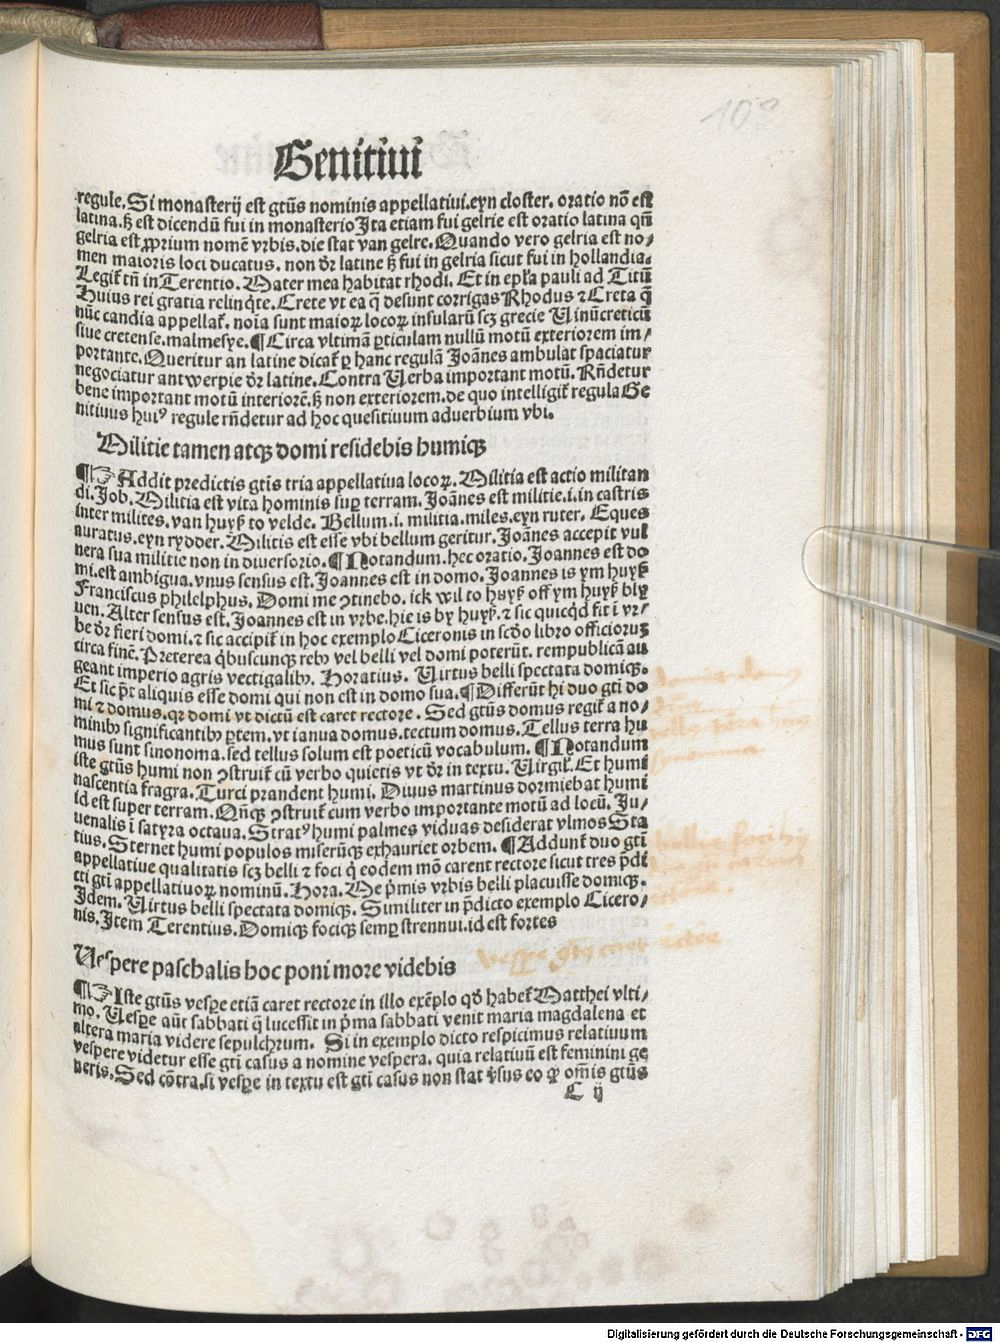 103
Genitiui
regule. Si monasterij est gtũs nominis appellatiui. eyn closter. oratio nõ est
latina. ꝫ est dicendũ fui in monasterio Ita etiam fui gelrie est oratio latina qñ
gelria est ꝓprium nomẽ vrbis. die stat van gelre. Quando vero gelria est no/
men maioris loci ducatus. non dr̃ latine ꝫ fui in gelria sicut fui in hollandia.
Legit̃ tñ in Terentio. Mater mea habitat rhodi. Et in epl̃a pauli ad Titũ
Huius rei gratia relinq̇te. Crete vt ea q̃ desunt corrigas Rhodus ⁊ Creta q̃
nũc candia appellat̃. noĩa sunt maioꝝ locoꝝ insularũ scꝫ grecie Uinũcreticũ
siue cretense. malmesye. ¶ Circa vltimã ꝑticulam nullũ motũ exteriorem im/
portante. Queritur an latine dicat̃ ꝑ hanc regulã Joãnes ambulat spaciatur
negociatur antwerpie dr̃ latine. Contra Uerba important motũ. Rñdetur
bene important motũ interiorẽ. ꝫ non exteriorem. de quo intelligit̃ regula Ge
nitiuus huiꝰ regule rñdetur ad hoc quesitiuum aduerbium vbi.
Militie tamen atqꝫ domi residebis humiqꝫ
¶☞ Addit predictis gtĩs tria appellatiua locoꝝ. Militia est actio militan
di. Job. Militia est vita hominis suꝑ terram. Joãnes est militie. i. in castris
inter milites. van huyß to velde. Bellum. i. militia. miles. eyn ruter. Eques
auratus. eyn rydder. Militis est esse vbi bellum geritur. Joãnes accepit vul
nera sua militie non in diuersorio. ¶ Notandum. hec oratio. Joannes est do
mi. est ambigua. vnus sensus est. Joannes est in domo. Joannes is ym huyß
Franciscus philelphus. Domi me ꝯtinebo. ick wil to huyß off ym huyß bly
uen. Alter sensus est. Joannes est in vrbe. hie is by huyß. ⁊ sic quicq̇d fit ĩ vr/
be dr̃ fieri domi. ⁊ sic accipit̃ in hoc exemplo Ciceronis in scd̃o libro officioruꝫ
circa finẽ. Preterea q̇buscunqꝫ rebꝫ vel belli vel domi poterũt. rempublicã au
geant imperio agris vectigalibꝫ. Horatius. Uirtus belli spectata domiqꝫ.
Et sic pt̃ aliquis esse domi qui non est in domo sua. ¶ Differũt hi duo gtĩ do
mi ⁊ domus. qr domi vt dictũ est caret rectore. Sed gtũs domus regit̃ a no/
minibꝫ significantibꝫ ꝑtem. vt ianua domus. tectum domus. Tellus terra hu
mus sunt sinonoma. sed tellus solum est poeticũ vocabulum. ¶ Notandum
iste gtũs humi non ꝯstruit̃ cũ verbo quietis vt dr̃ in textu. Uirgil̃. Et humi
nascentia fragra. Turci prandent humi. Diuus martinus dormiebat humi
id est super terram. Qñqꝫ ꝯstruit̃ cum verbo importante motũ ad locũ. Ju/
uenalis ĩ satyra octaua. Stratꝰ humi palmes viduas desiderat vlmos Sta
tius. Sternet humi populos miserũqꝫ exhauriet orbem. ¶ Addunt̃ duo gtĩ
appellatiue qualitatis scꝫ belli ⁊ foci q̇ eodem mõ carent rectore sicut tres p̃di
cti gtĩ appellatiuoꝝ nominũ. Hora. De p̃mis vrbis belli placuisse domiqꝫ.
Idem. Uirtus belli spectata domiqꝫ. Similiter in p̃dicto exemplo Cicero/
nis. Item Terentius. Domiqꝫ fociqꝫ semꝑ strennui. id est fortes
Uespere paschalis hoc poni more videbis
¶☞ Iste gtũs vesꝑe etiã caret rectore in illo exẽplo qd̃ habet̃ Matthei vlti/
mo. Uesꝑe aũt sabbati q̃ lucessit in p̃ma sabbati venit maria magdalena et
altera maria videre sepulchrum. Si in exemplo dicto respicimus relatiuum
vespere videtur esse gtĩ casus a nomine vespera. quia relatiuũ est feminini ge
neris. Sed cõtra. si vesꝑe in textu est gtĩ casus non stat v̓sus eo ꝙ om̃is gtũs
C ij
Digitalisierung gefördert durch die Deutsche Forschungsgemeinschaft - DFG